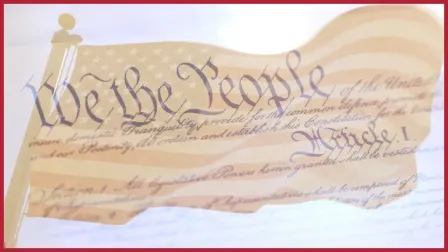 We the People
of the United
insure domestic Tranquility, provide for the common defence
and our Posterity, do ordain and establish this Constitution for the
Article. I.
Section. 1. All legislative Powers herein granted shall be vested
of Representatives
Representatives shall be composed of